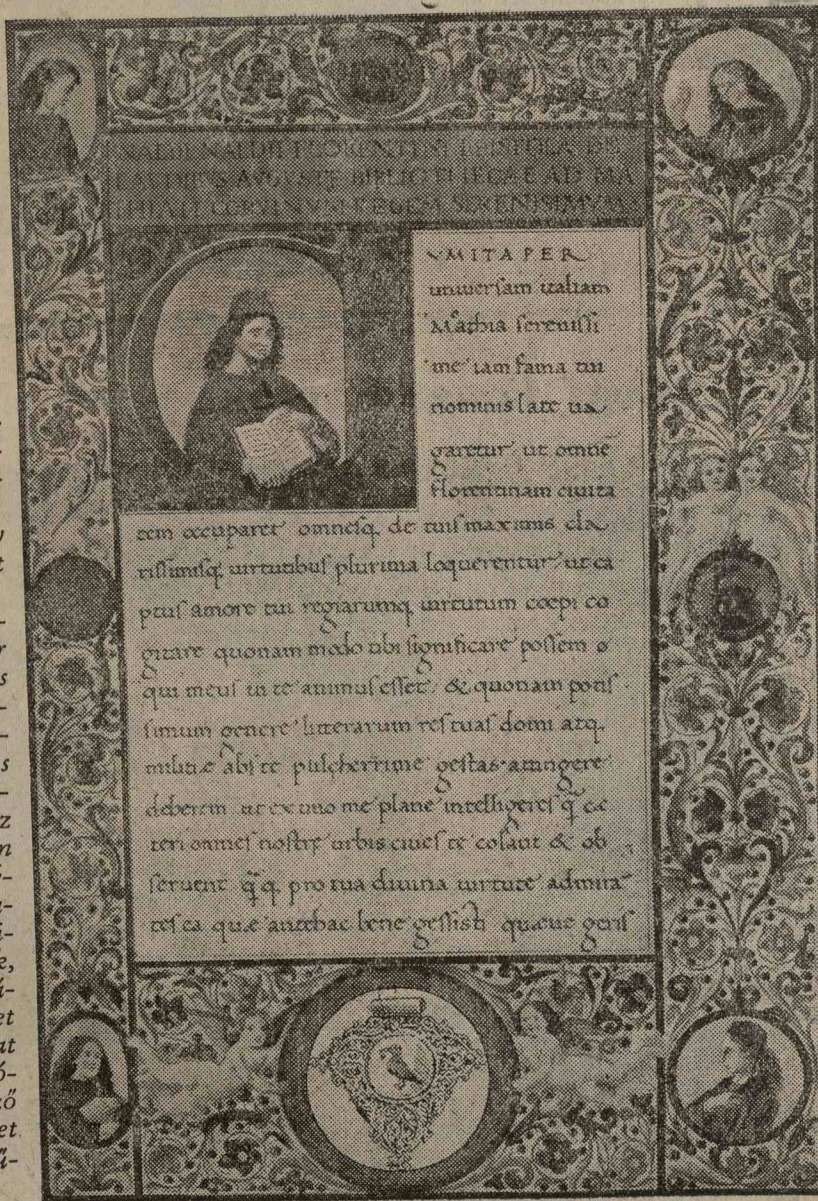 NALDI NALDII FLORENTINI EPISTOLA DE
LAVDIBVS AVGVSTE BIBLIOTHECAE AD MA
THIAM CORVINVM REGEM SERENISSIMVM
C
VM ITA PER
uniuersam italiam
Mathia serenissi
me iam fama tui
nominis late ua
garetur ut omnē
florentinam ciuita
tem occuparet omnesq, de tuis maximis cla
rissimisq, uirtutibus plurima loquerentur, ut ca
ptus amore tui regiarumq, uirtutum coepi co
gitare quonam modo tibi significare possem
qui meus in te animus esset, & quonam potis
simum genere litterarum res tuas domi atq,
militiæ abs te pulcherrime gestas attingere
deberem ut ex uno me plane intelligeres q̄ cæ
teri omnes nostrę urbis ciues te colant & ob
seruent q̄q, pro tua diuina uirtute admira
tes ea quæ antehac bene gessisti quæue geris
r
s
s
z
n
e,
et
at
ő
et
ű-